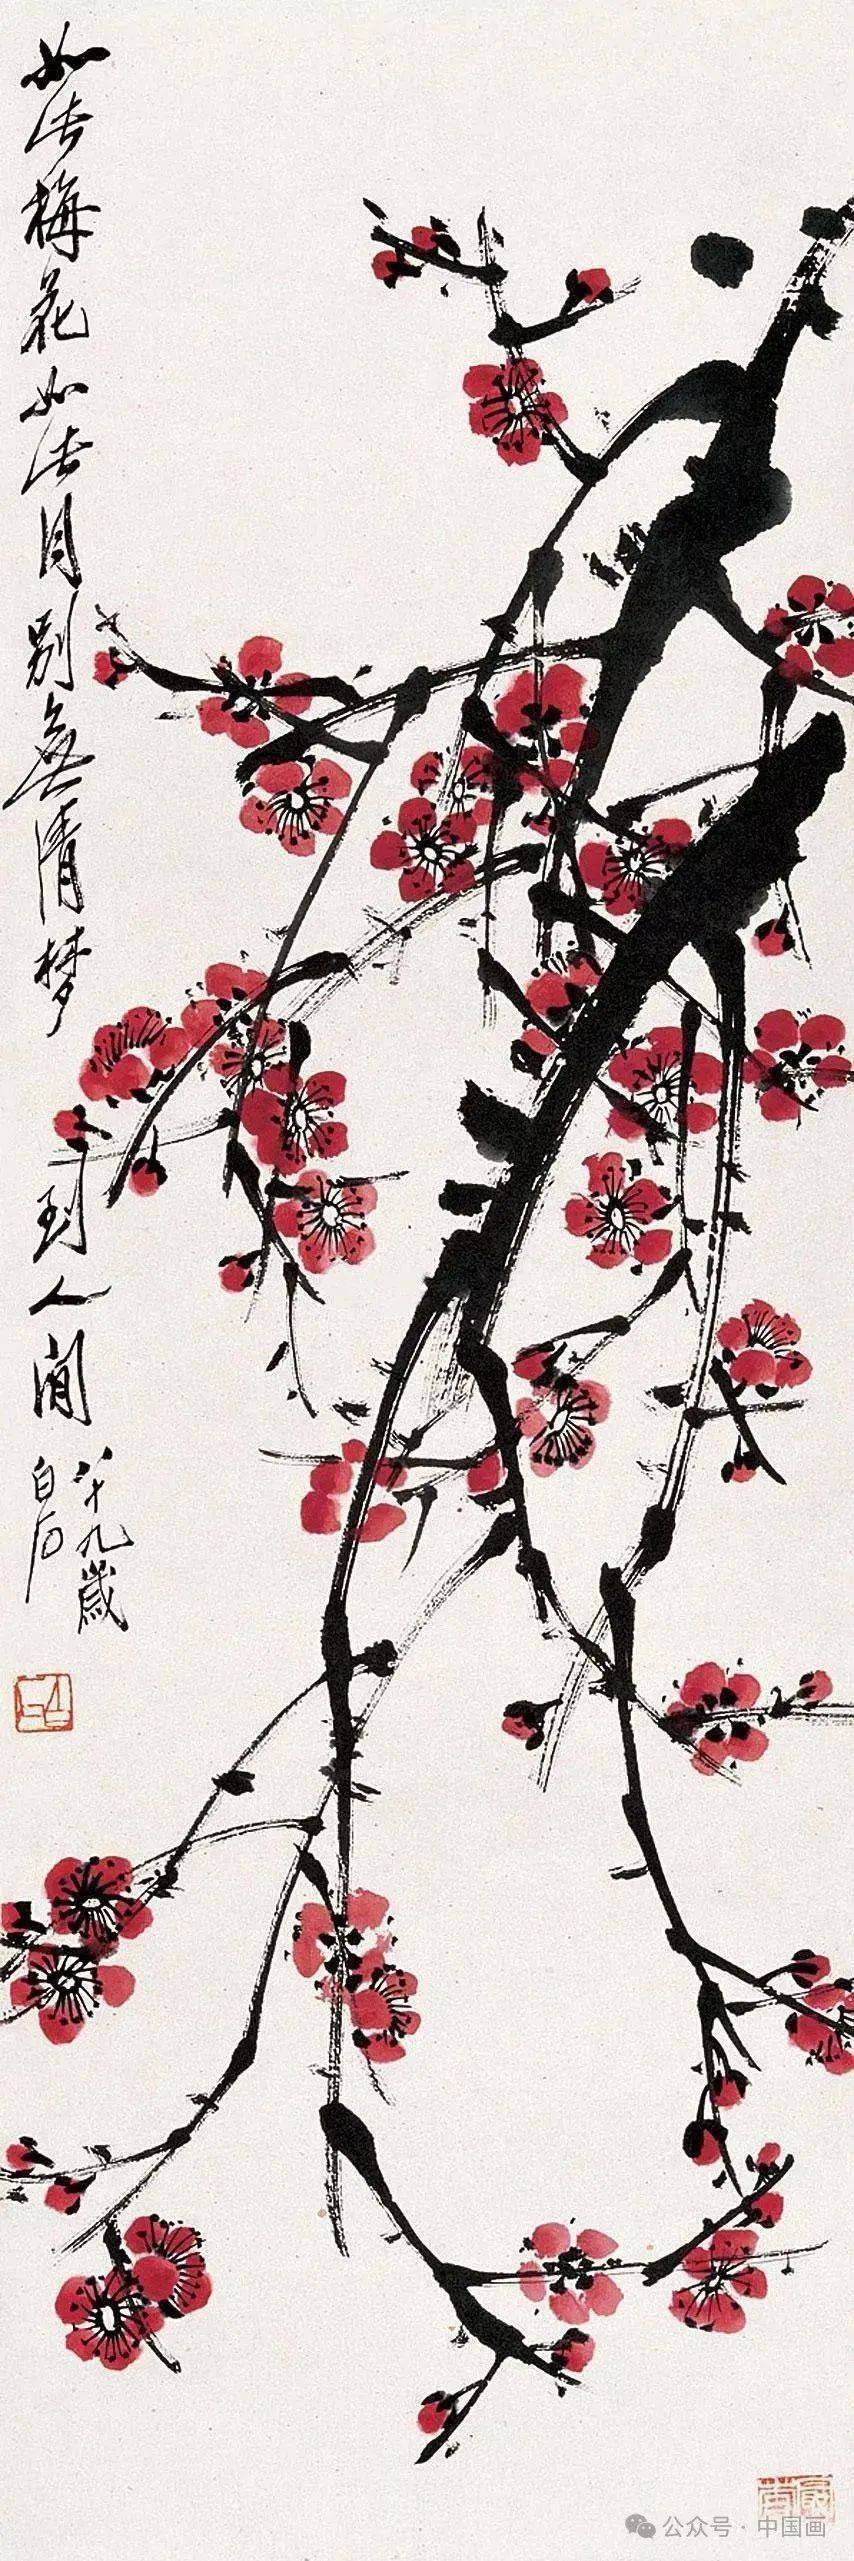 如此梅花如此月別無清夢到人間
八十九歲
白石
公众号 · 中国画